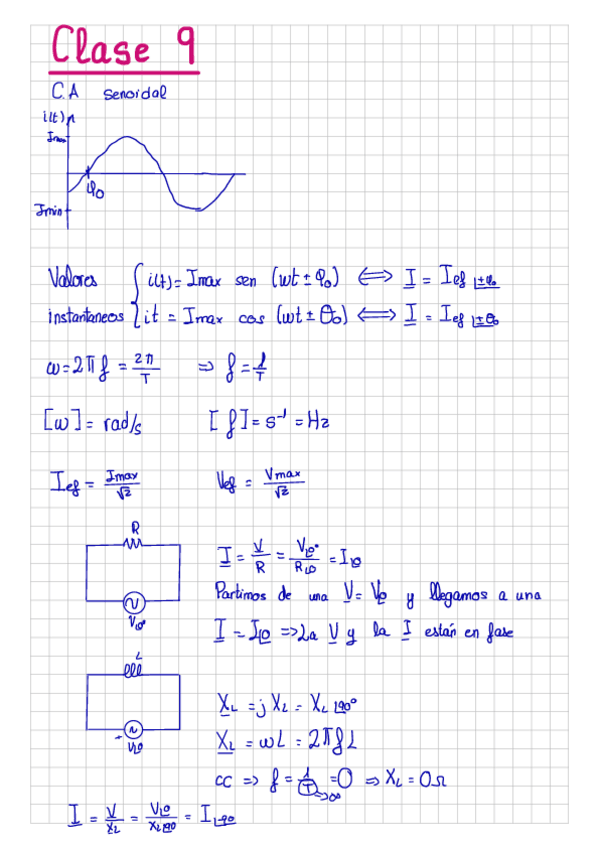 Clase 9
C.A senoidal
i(t)
Imax
φo
Imin
Valores instantaneos { i(t) = Imax sen (wt ± φo) ⟺ I = Ief |±φo
it = Imax cos (wt ± θo) ⟺ I = Ief |±θo
ω = 2πf = 2π/T ⇒ f = 1/T
[w] = rad/s [f] = s⁻¹ = Hz
Ief = Imax/√2 Vef = Vmax/√2
R
I = V/R = V|0°/R|0 = I|0
V|0°
Partimos de una V = V|0 y llegamos a una
I = I|0 ⇒ La V y la I están en fase
L
V|0
XL = jXL = XL|90°
XL = wL = 2πfL
CC ⇒ f = 1/T = 0 ⇒ XL = 0Ω
T→∞
I = V/XL = V|0/XL|90 = I|-90